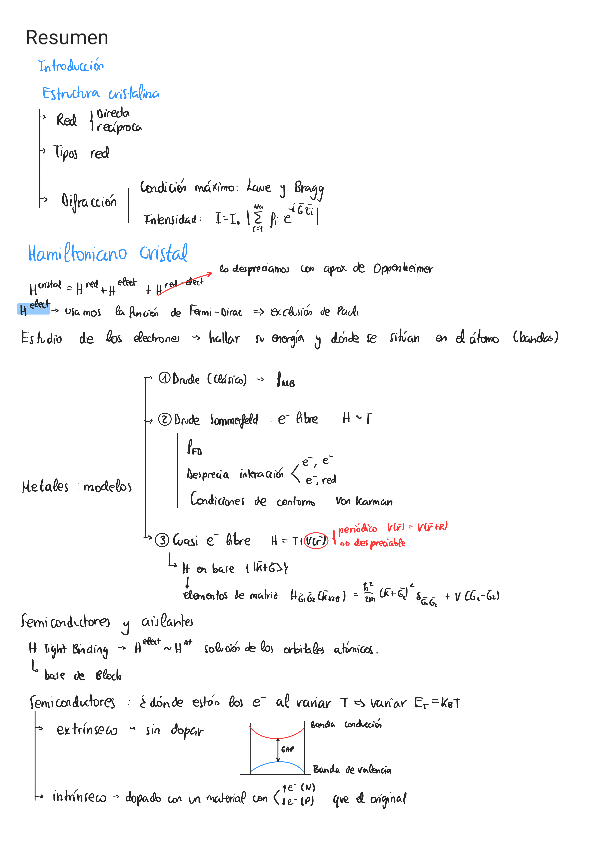 Resumen
Introducción
Estructura cristalina
Red { Directa
recíproca
Tipos red
Difracción
Condición máximo: Laue y Bragg
Intensidad: I = I₀ |∑ fᵢ e^{-iḠr̄ᵢ}|
Hamiltoniano Cristal
lo despreciamos con aprox de Oppenheimer
H^cristal = H^red + H^elect + H^red-elect
H^elect → usamos la función de Fermi-Dirac => exclusión de Pauli
Estudio de los electrones → hallar su energía y dónde se sitúan en el átomo (bandas)
Metales: modelos
① Drude (clásico) → f_MB
② Drude Sommerfeld: e⁻ libre H ~ T
f_FD
Desprecia interacción < e⁻, e⁻
e⁻, red
Condiciones de contorno Von Karman
③ Cuasi e⁻ libre H = T + V(r̄) { periódico V(r̄) = V(r̄+R̄)
no despreciable
H en base {|k̄+Ḡ>}
elementos de matriz H_{Ḡ₁Ḡ₂}(k̄) = ħ²/2m (k̄+Ḡ₁)² δ_{Ḡ₁Ḡ₂} + V(Ḡ₁-Ḡ₂)
Semiconductores y aislantes
H Tight Binding → H^elect ~ H^at solución de los orbitales atómicos.
base de Bloch
Semiconductores: ¿dónde están los e⁻ al variar T => variar E_T = K_BT
extrínseco → sin dopar
Banda conducción
GAP
Banda de valencia
intrínseco → dopado con un material con < ↑e⁻ (N)
↓e⁻ (P) que el original